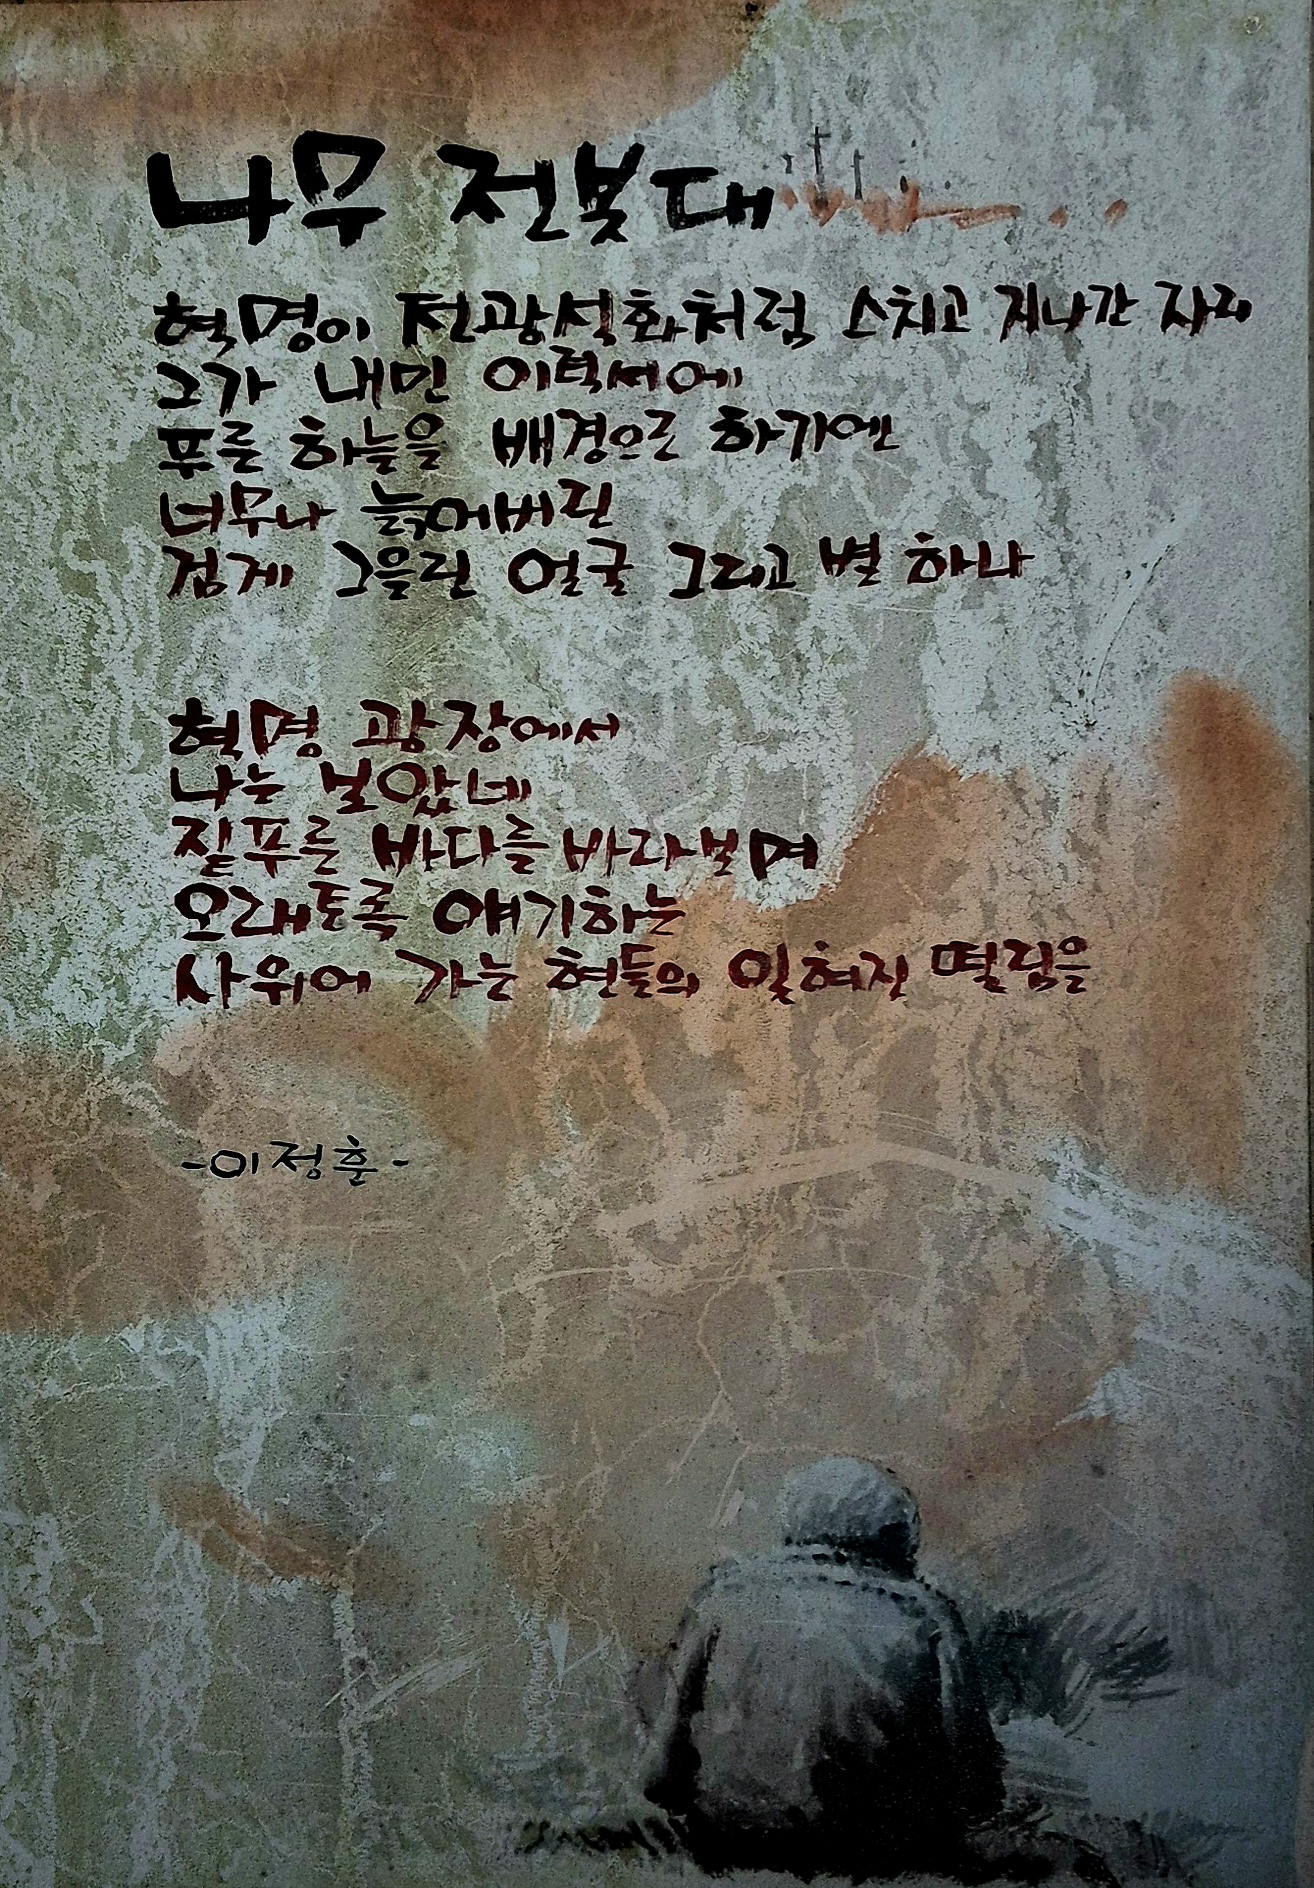 나무 전봇대
혁명이 전광석화처럼 스치고 지나간 자리
그가 내민 이력서에
푸른 하늘을 배경으로 하기엔
너무나 늙어버린
검게 그을린 얼굴 그리고 별 하나
혁명 광장에서
나는 보았네
짙푸른 바다를 바라보며
오래토록 얘기하는
사위어 가는 현들의 잊혀진 떨림을
-이정훈-